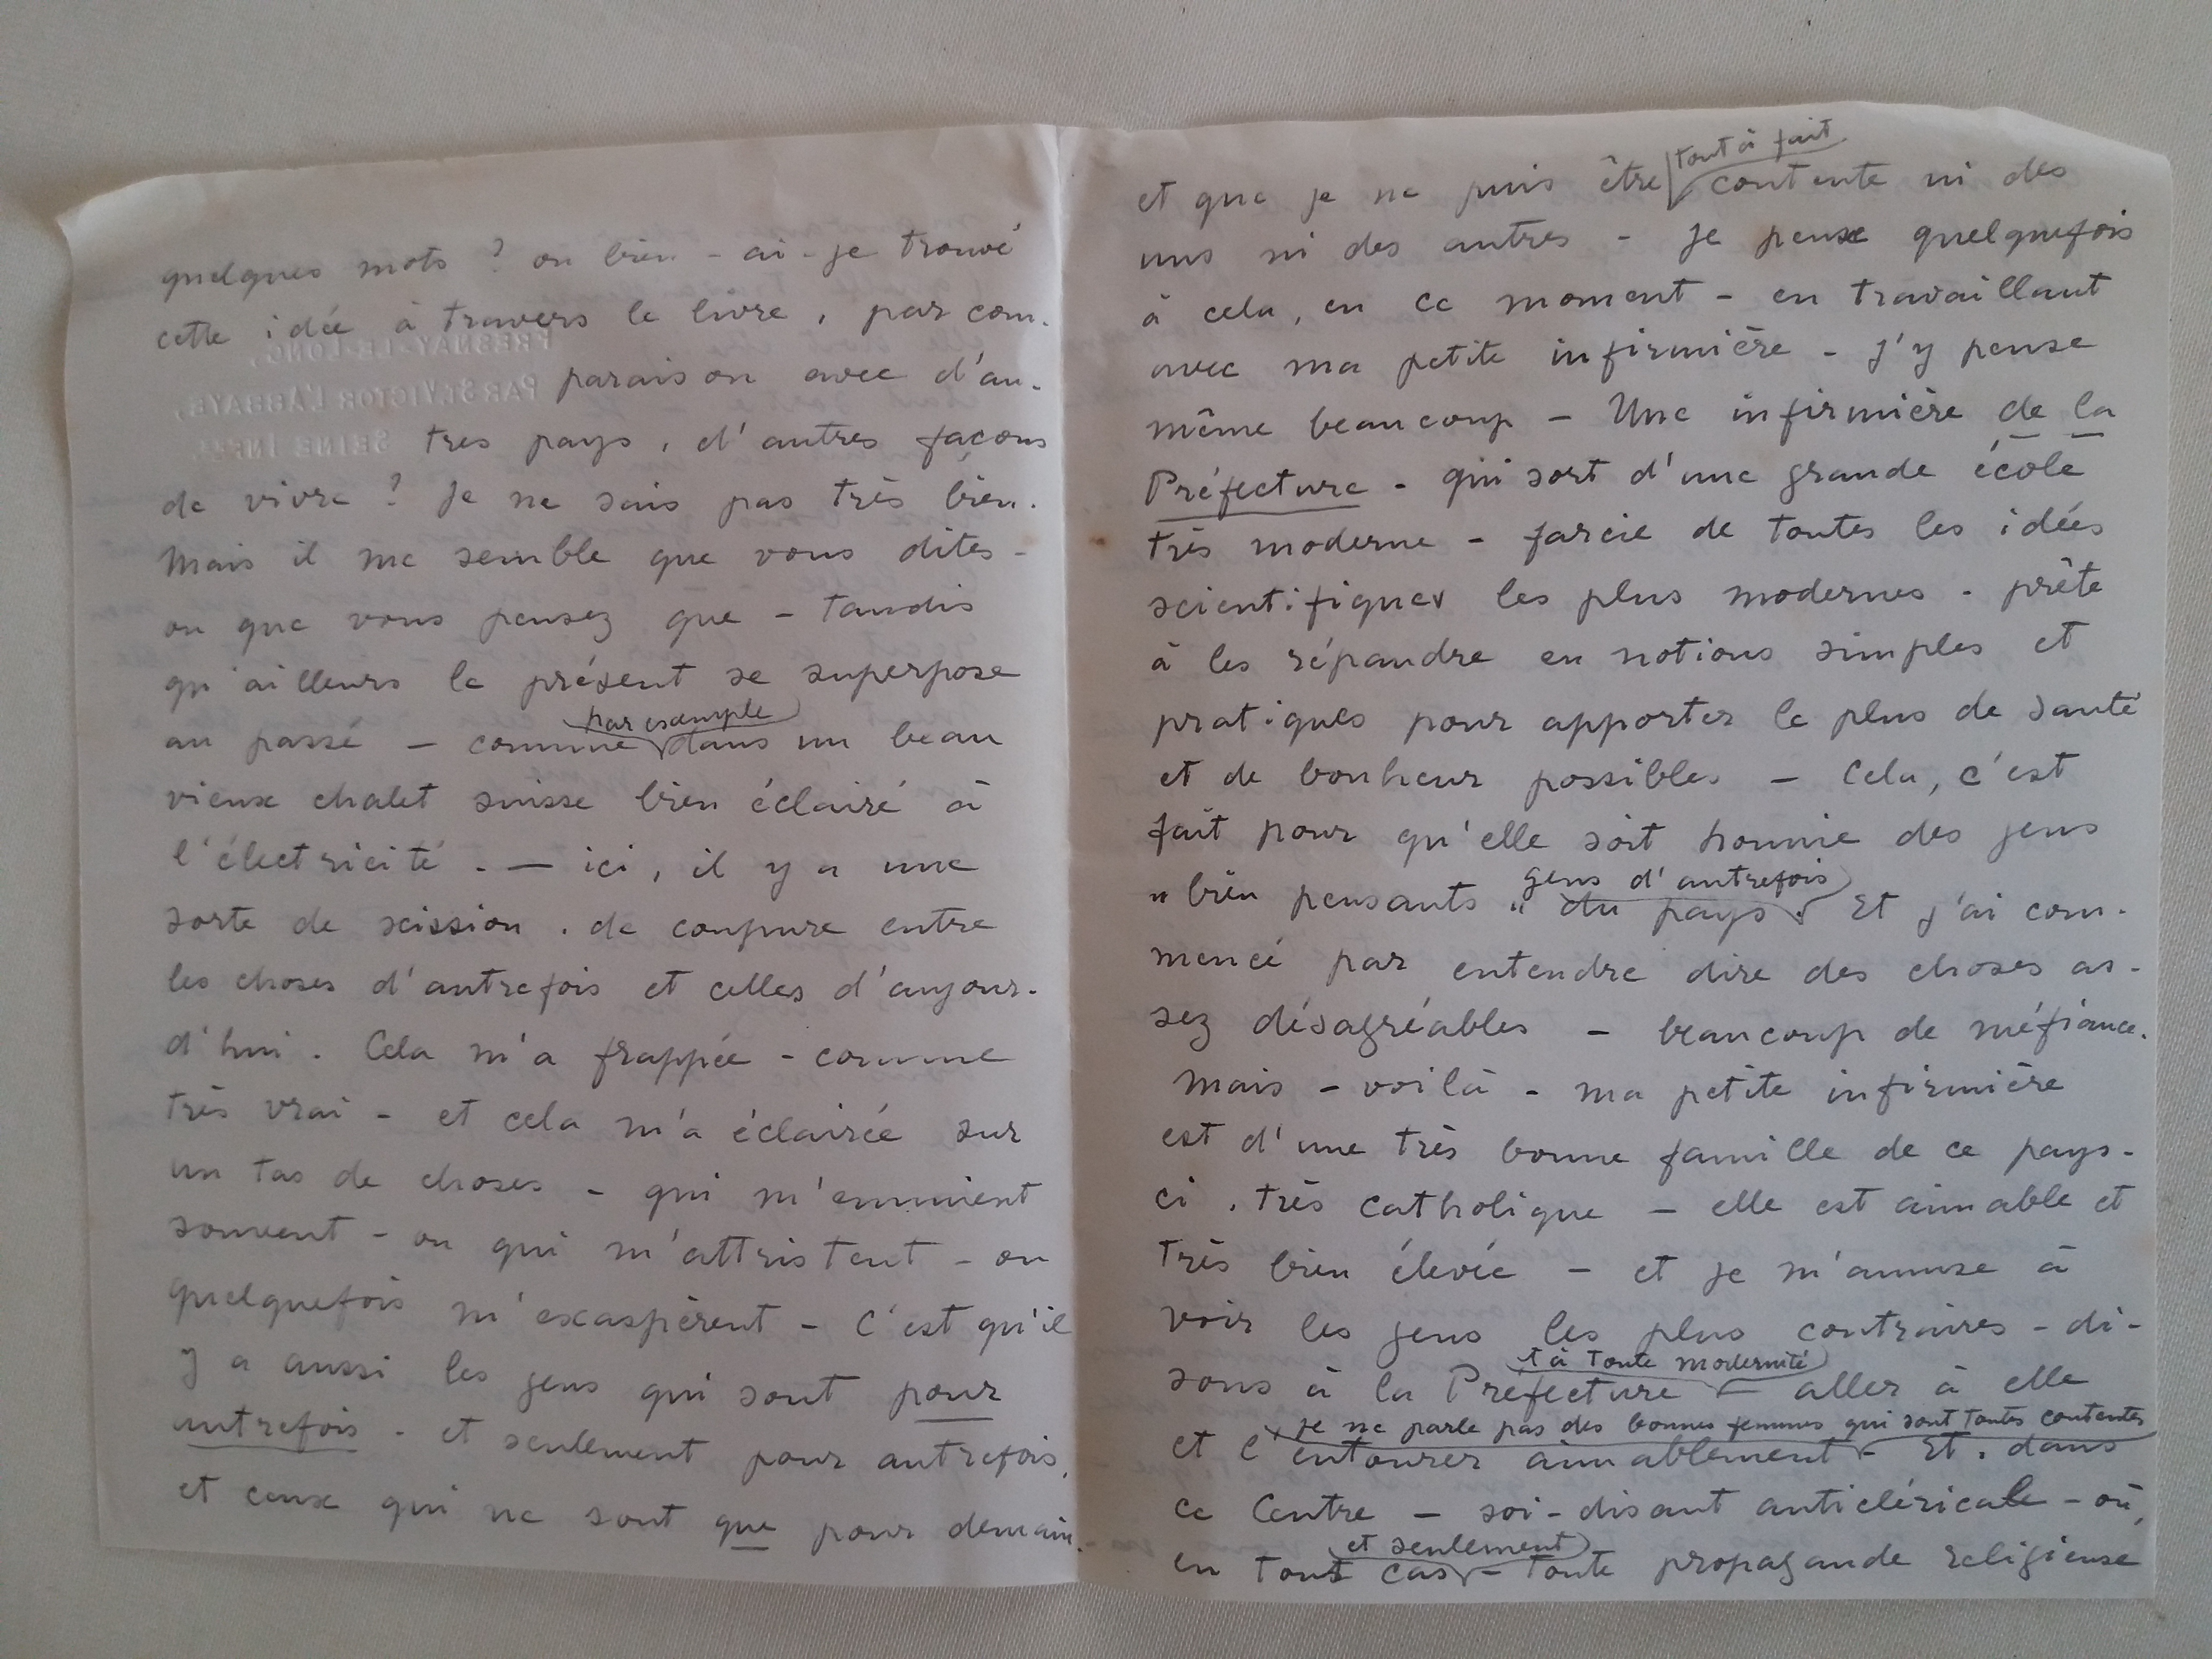 quelques mots ? ou bien - ai-je trouvé
cette idée à travers le livre, par com-
FRESNAY-LE-LONG,
paraison avec d'au-
PAR ST. VICTOR L'ABBAYE,
tres pays, d'autres façons
SEINE INFRE
de vivre ? Je ne sais pas très bien.
Mais il me semble que vous dites -
ou que vous pensez que - tandis
qu'ailleurs le présent se superpose
par exemple
au passé - comme dans un beau
vieux chalet suisse bien éclairé à
l'électricité. - ici, il y a une
sorte de scission. de coupure entre
les choses d'autrefois et celles d'aujour-
d'hui. Cela m'a frappée - comme
très vrai - et cela m'a éclairée sur
un tas de choses - qui m'ennuient
souvent - ou qui m'attristent - ou
quelquefois m'exaspèrent - C'est qu'il
y a aussi les gens qui sont pour
autrefois - et seulement pour autrefois,
et ceux qui ne sont que pour demain.
tout à fait
et que je ne puis être contente ni des
uns ni des autres - Je pense quelquefois
à cela, en ce moment - en travaillant
avec ma petite infirmière - J'y pense
même beaucoup - Une infirmière de la
Préfecture - qui sort d'une grande école
très moderne - farcie de toutes les idées
scientifiques les plus modernes - prête
à les répandre en notions simples et
pratiques pour apporter le plus de santé
et de bonheur possibles - Cela, c'est
fait pour qu'elle soit honnie des gens
gens d'autrefois
" bien pensants " du pays. Et j'ai com-
mencé par entendre dire des choses as-
sez désagréables - beaucoup de méfiance.
Mais - voilà - ma petite infirmière
est d'une très bonne famille de ce pays-
ci, très catholique - elle est aimable et
très bien élevée - et je m'amuse à
voir les gens les plus contraires - di-
t à toute modernité
sons à la Préfecture - aller à elle
je ne parle pas des bonnes femmes qui sont toutes contentes
et l'entourer aimablement - Et, dans
ce Centre - soi-disant anticléricale - où,
et seulement
en tout cas - toute propagande religieuse